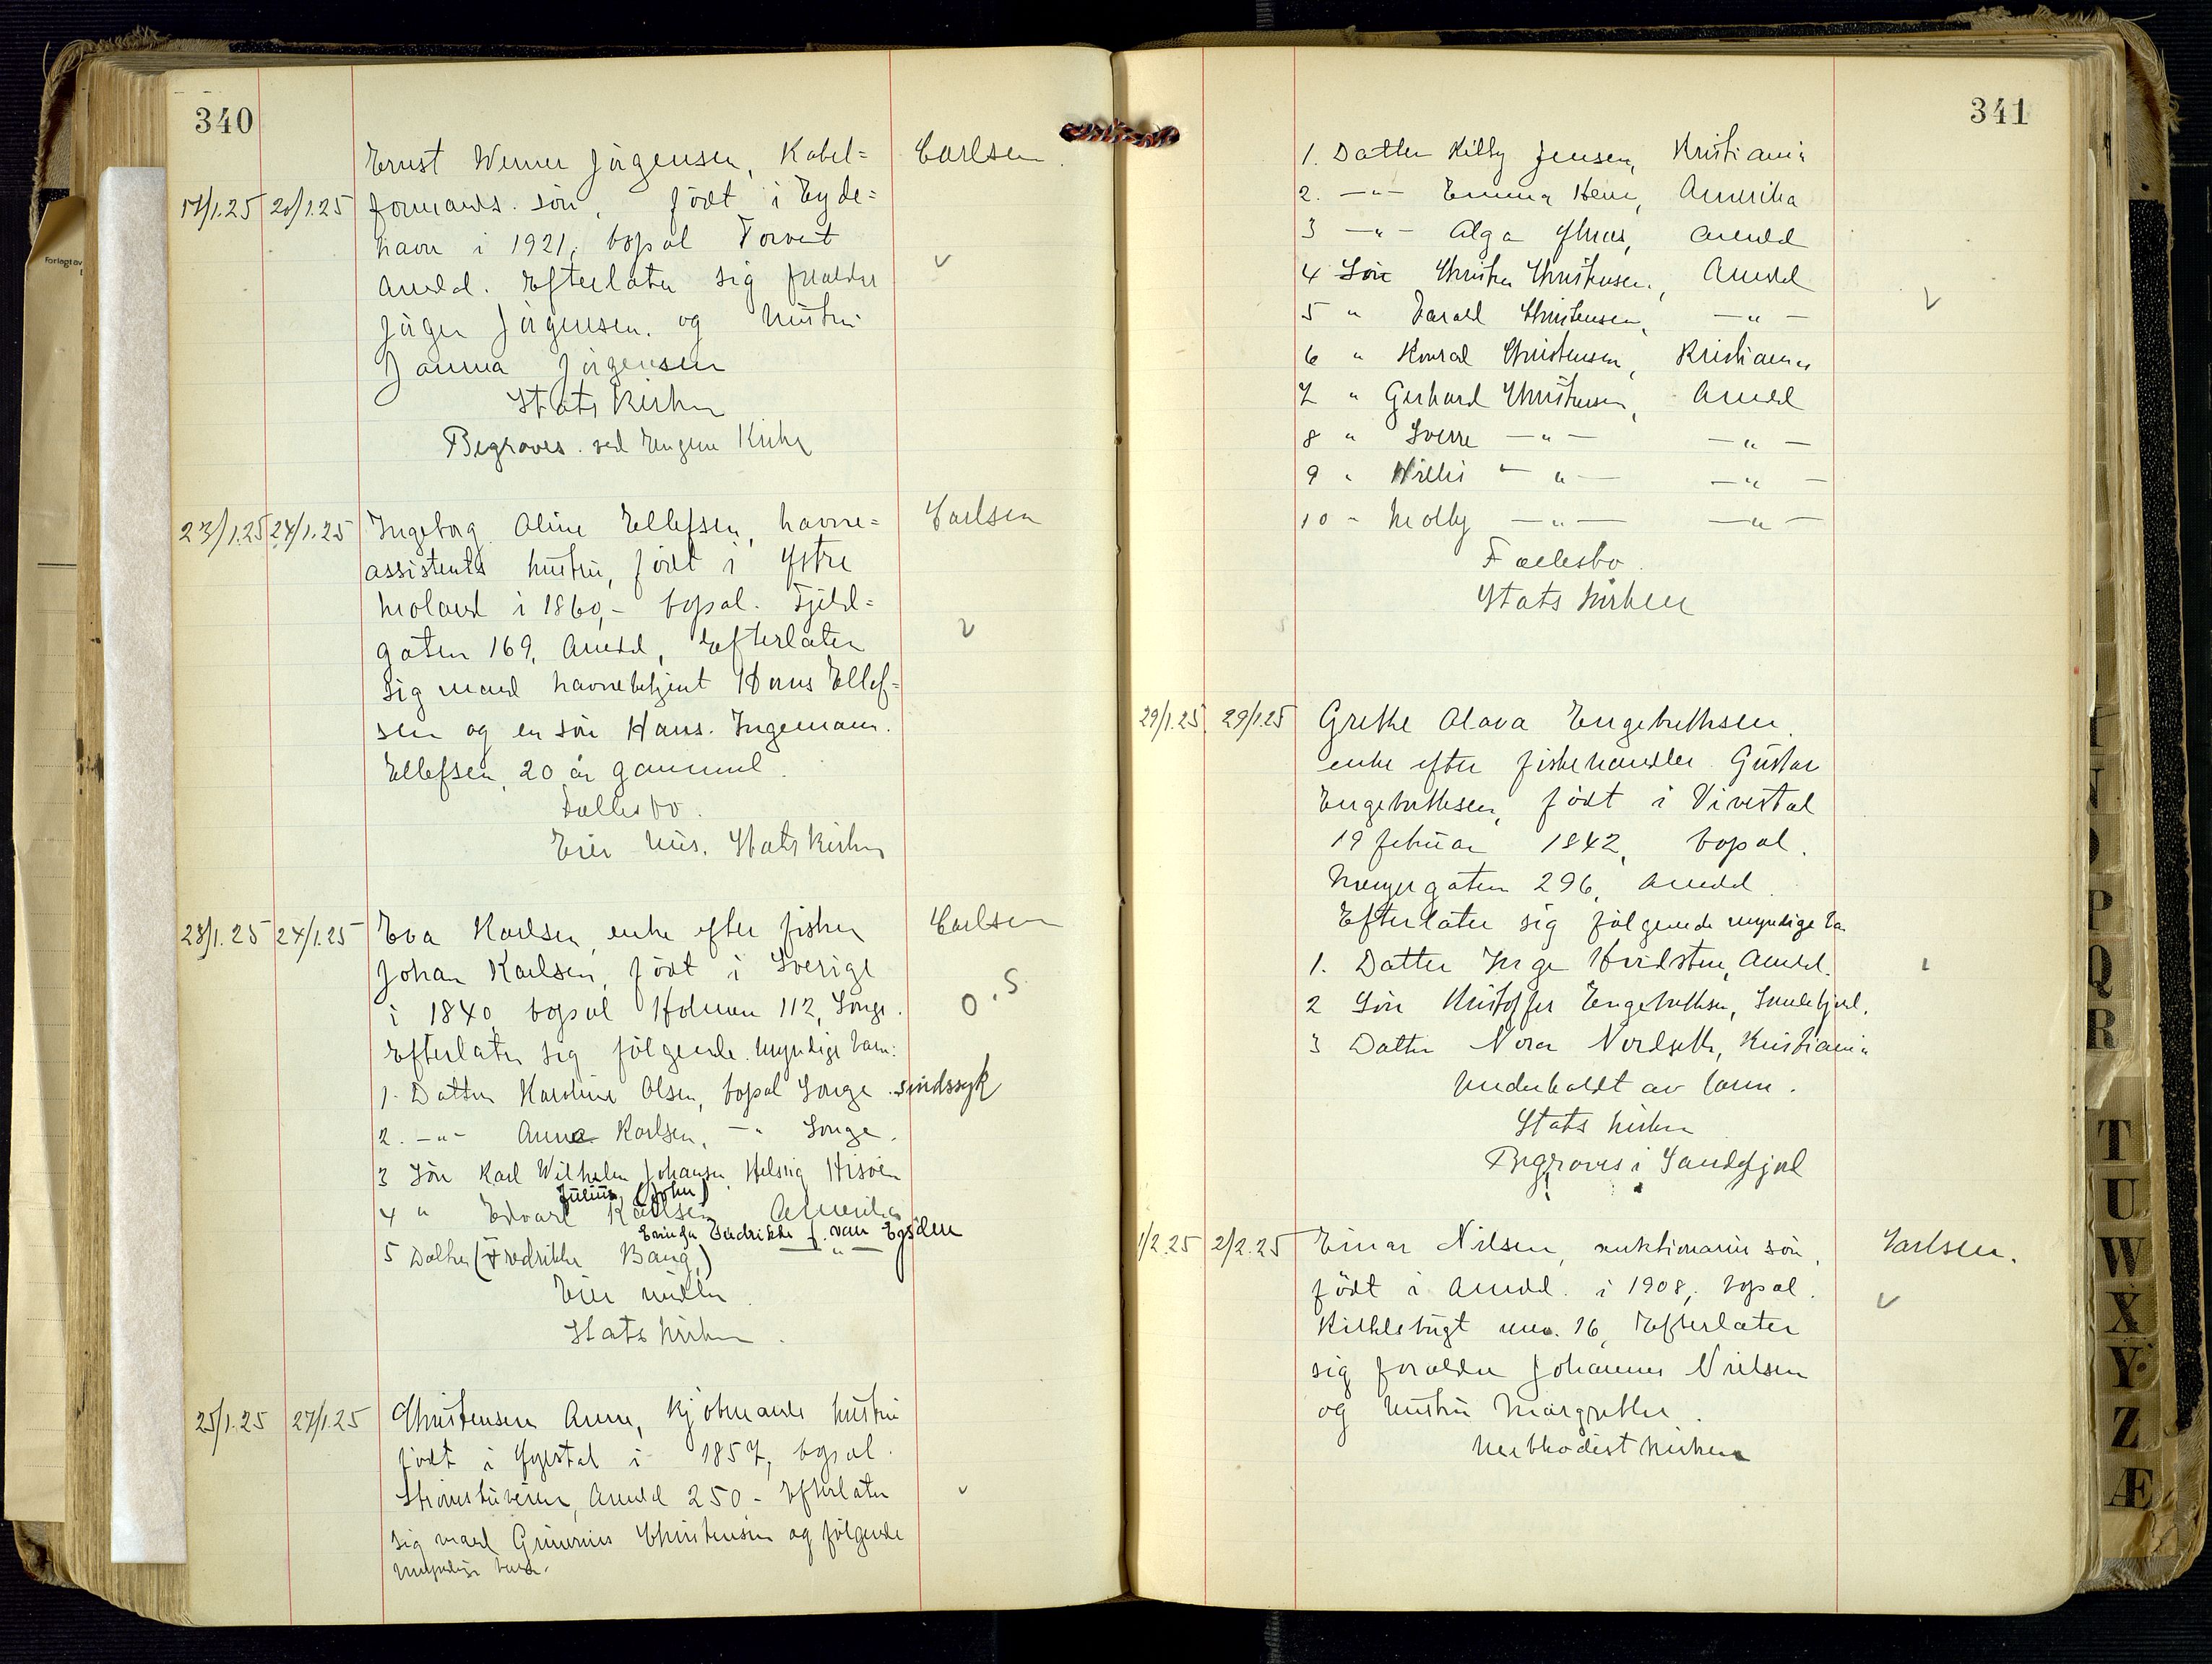 340
Ernst Werner Jörgensen, Kabel= Carlsen
17/1.25 20/1.25 formands sön, födt i Eyde=
havn i 1921, bopæl Torvet
Arendal. Efterlater sig forældre
Jörgen Jörgensen og hustru
Janna Jörgensen
Statskirken
Begraves ved Engene Kirke
23/1.25 24/1.25 Ingeborg Oline Ellefsen, havne= Carlsen
assistents hustru, födt i Østre
Moland i 1860,- bopæl Fjeld=
gaten 169, Arendal, Efterlater
sig mand havnebetjent Hans Ellef=
sen og en sön Hans Ingemann
Ellefsen, 20 år gammel.
Fællesbo.
Eier hus. Statskirken
23/1.25 24/1.25 Eva Karlsen, enke efter fisker Carlsen
Johan Karlsen, födt i Sverige
i 1840, bopæl Holmen 112, Songe. O.S
Efterlater sig fölgende myndige barn:
1. Datter Karoline Olsen, bopæl Songe. sindssyk
2. -"- Anna Karlsen, -" Songe.
3 Sön Karl Wilhelm Johansen, Hisöen
Julius (John)
4 " Edvart Karlsen Amerika
Fredrikke f. van
5 Datter (Fredrikke Bang) —"—
Eier midler
Statskirken.
25/1.25 27/1.25 Christensen Anne, kjöbmands hustru
födt i i 1857, bopæl
Arendal 250 - Efterlater
sig mand Christensen og fölgende
myndige barn.
341
1. Datter Kitty Jensen, Kristiania
2. —"— Emma Amerika
3 —"— Alga Arendal
4 Sön Christen Christensen, Arendal
5 " Harald Christensen, —"—
6 " Konrad Christensen, Kristiania
7 " Gerhard Christensen, Arendal
8 " Sverre —"— —"—
9 " Willi —"— —"—
10 - Molly —"— —"—
Fællesbo.
Statskirken
29/1.25 29/1.25 Grethe Olava Engebrethsen
enke efter fiskehandler Gustav
Engebrethsen, födt i Vivestad
19 februar 1842, bopæl.
gaten 296, Arendal.
Efterlater sig fölgende myndige barn
1. Datter Inga Hvidsten, Arendal.
2 Sön Kristoffer Engebrethsen, Sandefjord.
3 Datter Nora Kristiania
Underholdt av barn.
Statskirken
Begraves i Sandefjord
1/2.25 2/2.25 Einar Nilsen, auktionarius sön, Carlsen.
födt i Arendal i 1908, bopæl.
16, Efterlater
sig forældre Johannes Nielsen
og hustru Margrethe.
Methodistkirken
T
U
W
X
Y
Z
Æ
P
Q
R